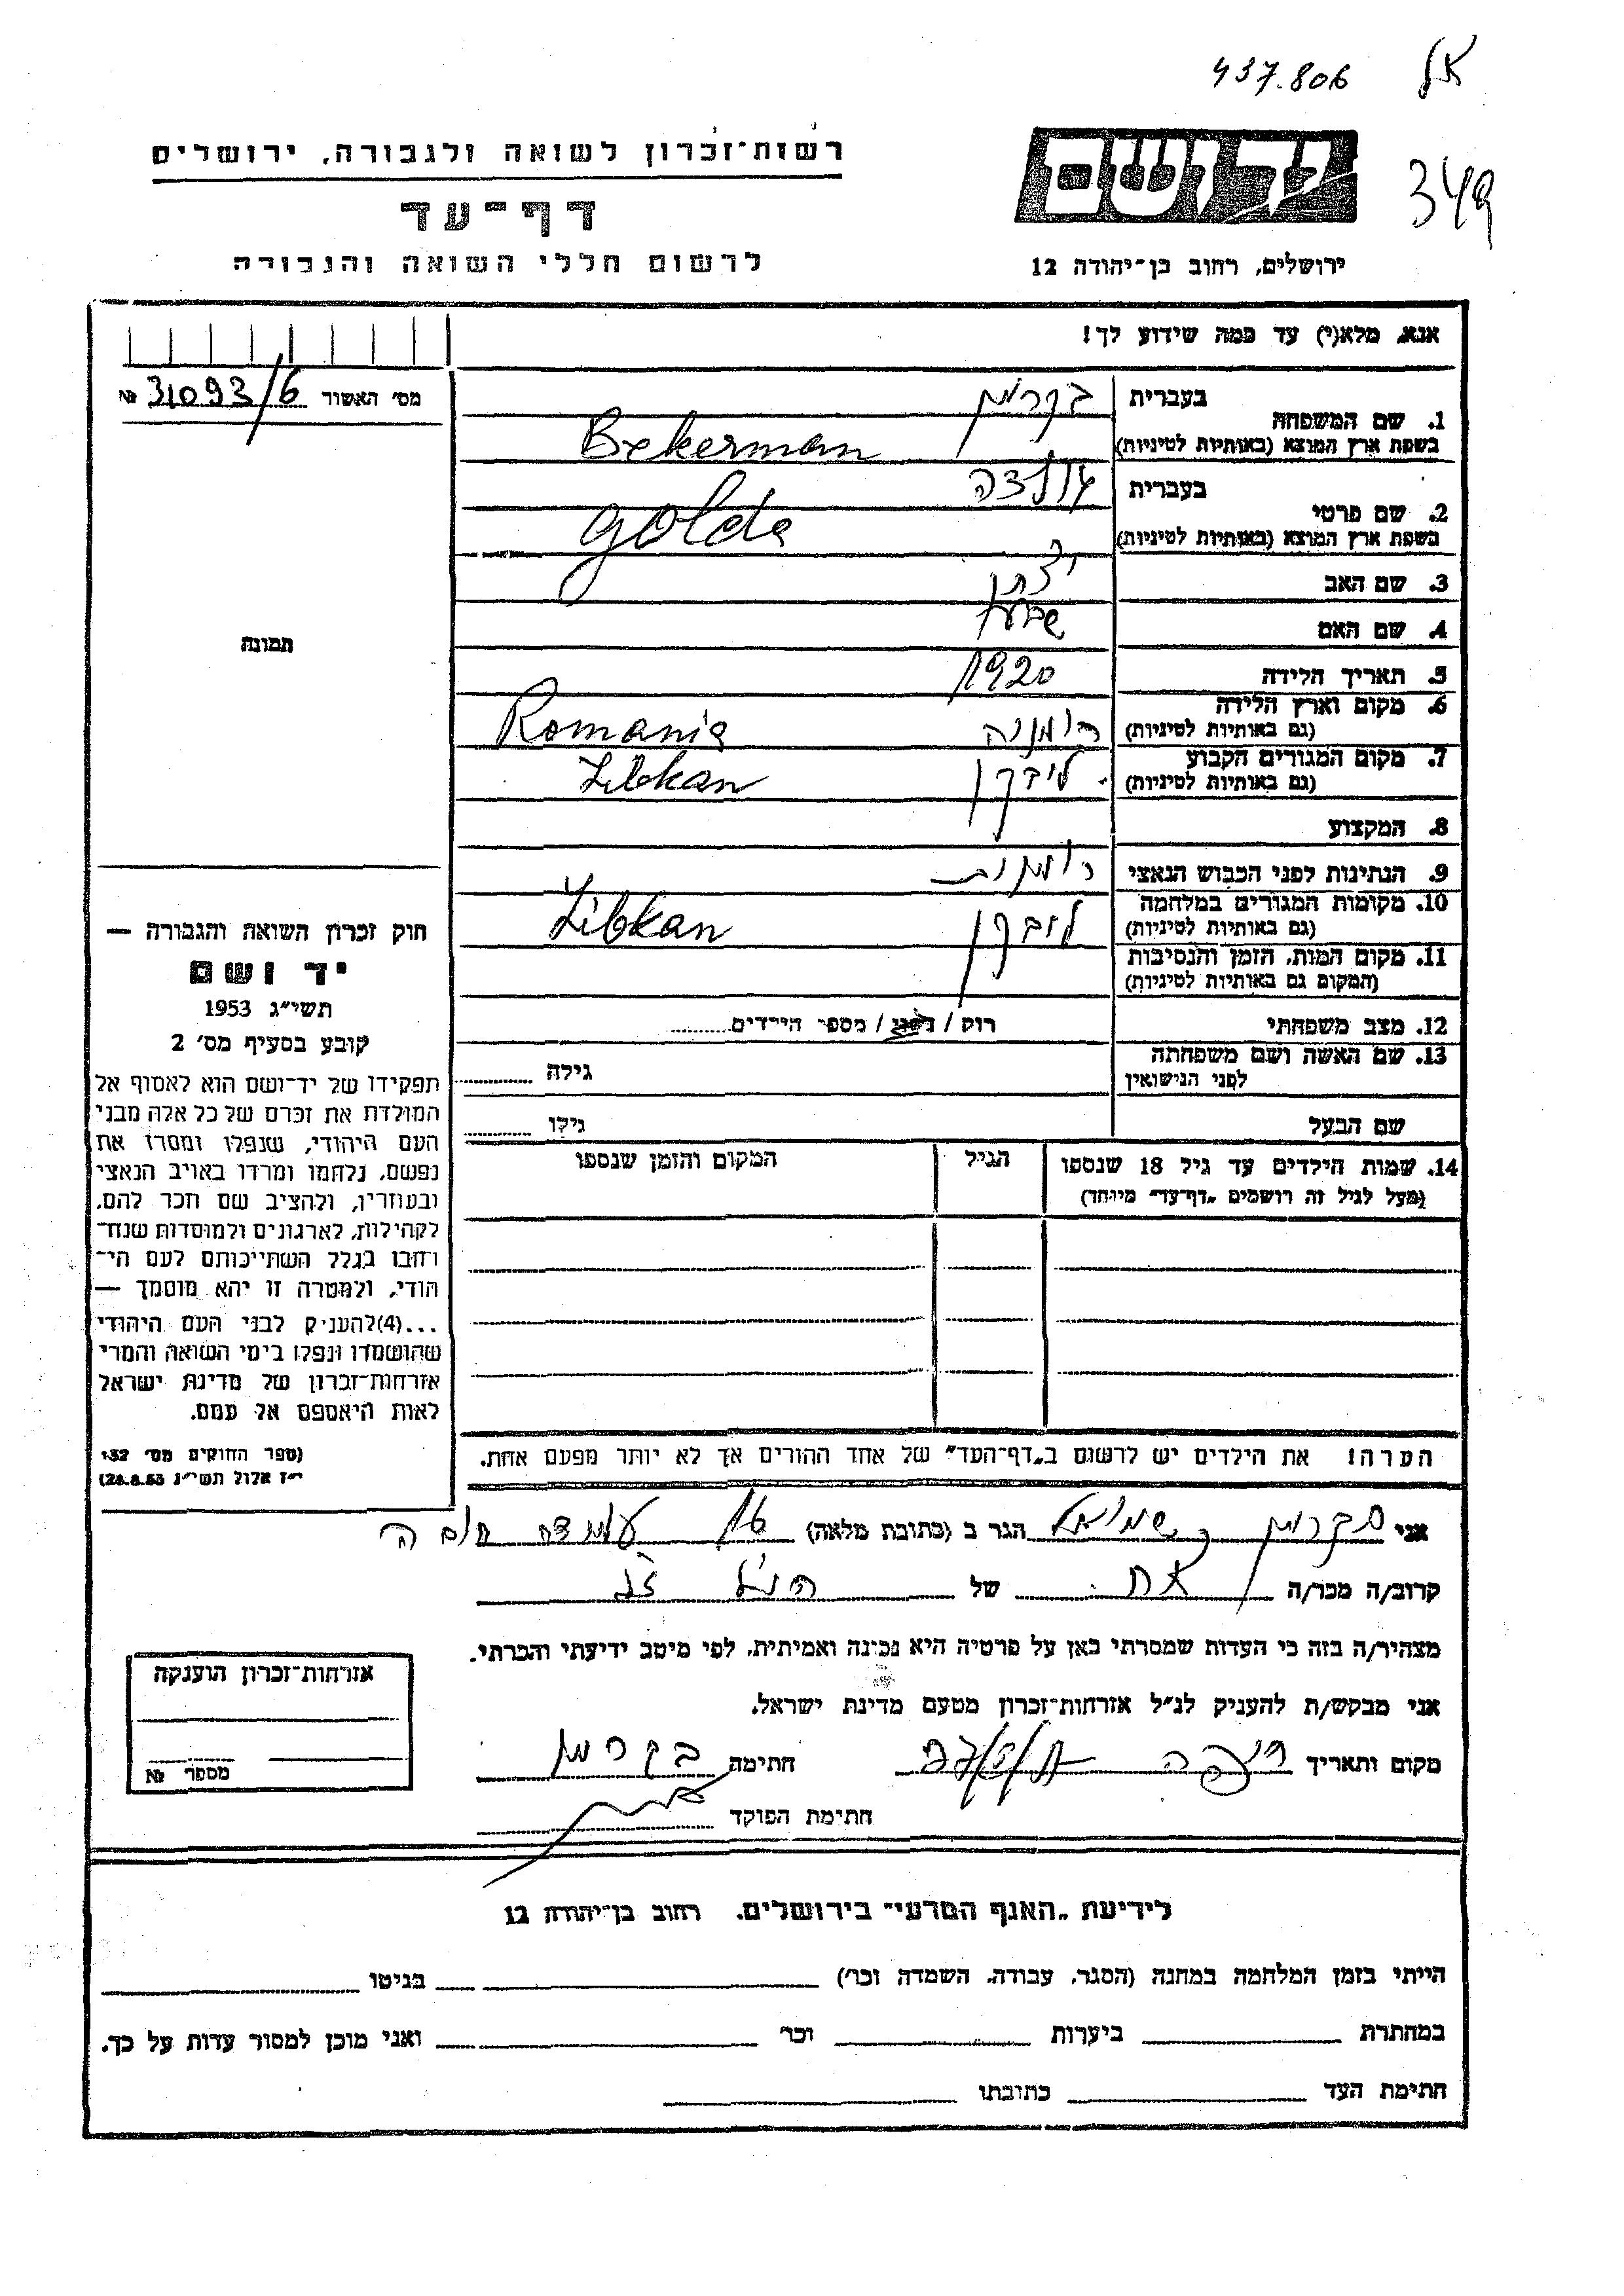 437.806
349
יד ושם
ירושלים, רחוב בן־יהודה 12
רשות־זכרון לשואה ולגבורה, ירושלים
דף־עד
לרשום חללי השואה והגבורה
אנא, מלא(י) עד כמה שידוע לך!
מס׳ האשור 31093/6 №
1. שם המשפחה
בעברית בקרמן
בשפת ארץ המוצא (באותיות לטיניות) Bekerman
2. שם פרטי
בעברית גולדה
בשפת ארץ המוצא (באותיות לטיניות) Golda
3. שם האב
4. שם האם
5. תאריך הלידה 1920
6. מקום וארץ הלידה רומניה Romania
(גם באותיות לטיניות)
7. מקום המגורים הקבוע ליבקן Libkan
(גם באותיות לטיניות)
8. המקצוע
9. הנתינות לפני הכבוש הנאצי רומנית
10. מקומות המגורים במלחמה ליבקן Libkan
(גם באותיות לטיניות)
11. מקום המות, הזמן והנסיבות
(המקום גם באותיות לטיניות)
12. מצב משפחתי רוק / נשוי / מספר הילדים
13. שם האשה ושם משפחתה
לפני הנישואין גילה
שם הבעל גילו
14. שמות הילדים עד גיל 18 שנספו הגיל המקום והזמן שנספו
(מעל לגיל זה רושמים „דף־עד״ מיוחד)
הערה! את הילדים יש לרשום ב„דף־העד״ של אחד ההורים אך לא יותר מפעם אחת.
תמונה
חוק זכרון השואה והגבורה —
יד ושם
תשי״ג 1953
קובע בסעיף מס׳ 2
תפקידו של יד־ושם הוא לאסוף אל
המולדת את זכרם של כל אלה מבני
העם היהודי, שנפלו ומסרו את
נפשם, נלחמו ומרדו באויב הנאצי
ובעוזריו, ולהציב שם וזכר להם,
לקהילות, לארגונים ולמוסדות שנח־
רחבו בגלל השתייכותם לעם הי־
הודי, ולמטרה זו יהא מוסמך —
...(4) להעניק לבני העם היהודי
שהושמדו ונפלו בימי השואה והמרי
אזרחות־זכרון של מדינת ישראל
לאות היאספם אל עמם.
(ספר החוקים מס׳ 132
י״ז אלול תשי״ג 28.8.53)
אני בקרמן שמואל הגר ב (כתובת מלאה)
קרוב/ה מכר/ה אח של הנ״ל
מצהיר/ה בזה כי העדות שמסרתי כאן על פרטיה היא נכונה ואמיתית, לפי מיטב ידיעתי והכרתי.
אני מבקש/ת להעניק לנ״ל אזרחות־זכרון מטעם מדינת ישראל.
מקום ותאריך חיפה חתימה בקרמן
חתימת הפוקד
אזרחות־זכרון הוענקה
מספר №
לידיעת „האגף המדעי״ בירושלים, רחוב בן־יהודה 12
הייתי בזמן המלחמה במחנה (הסגר, עבודה, השמדה וכו׳) בגיטו
במחתרת ביערות וכו׳ ואני מוכן למסור עדות על כך.
חתימת העד כתובתו